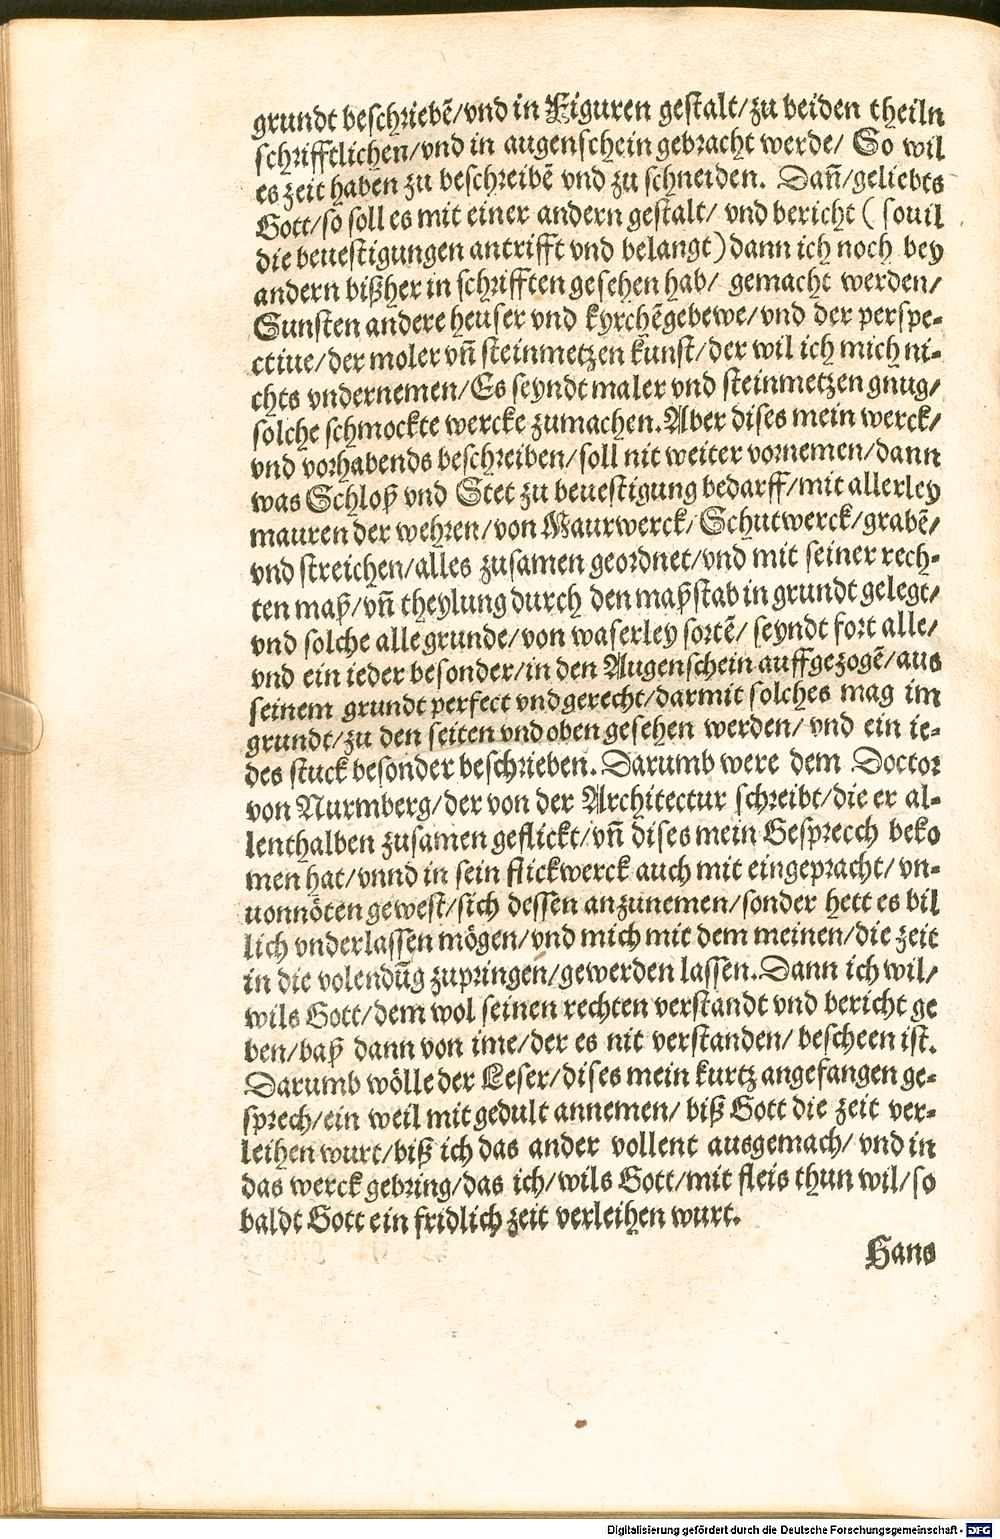 grundt beschriebẽ/vnd in Figuren gestalt/zu beiden theiln
schrifftlichen/vnd in augenschein gebracht werde/ So wil
es zeit haben zu beschreibẽ vnd zu schneiden. Dañ/geliebts
Gott/so soll es mit einer andern gestalt/ vnd bericht ( souil
die beuestigungen antrifft vnd belangt) dann ich noch bey
andern bißher in schrifften gesehen hab/ gemacht werden/
Sunsten andere heuser vnd kyrchẽgebewe/vnd der perspe-
ctiue/der moler vñ steinmetzen kunst/der wil ich mich ni-
chts vndernemen/Es seyndt maler vnd steinmetzen gnug/
solche schmockte wercke zumachen. Aber dises mein werck/
vnd vorhabends beschreiben/soll nit weiter vornemen/dann
was Schloß vnd Stet zu beuestigung bedarff/mit allerley
mauren der wehren/von Maurwerck/Schutwerck/grabẽ/
vnd streichen/alles zusamen geordnet/vnd mit seiner rech-
ten maß/vñ theylung durch den maßstab in grundt gelegt/
vnd solche alle grunde/von waserley sortẽ/ seyndt fort alle/
vnd ein ieder besonder/in den Augenschein auffgezogẽ/aus
seinem grundt perfect vnd gerecht/darmit solches mag im
grundt/zu den seiten vnd oben gesehen werden/ vnd ein ie-
des stuck besonder beschrieben. Darumb were dem Doctor
von Nurmberg/der von der Architectur schreibt/die er al-
lenthalben zusamen geflickt/vñ dises mein Gesprecch beko
men hat/vnnd in sein flickwerck auch mit eingepracht/ vn-
uonnöten gewest/sich dessen anzunemen/sonder hett es bil
lich vnderlassen mögen/vnd mich mit dem meinen/die zeit
in die volendũg zupringen/gewerden lassen. Dann ich wil/
wils Gott/dem wol seinen rechten verstandt vnd bericht ge
ben/baß dann von ime/der es nit verstanden/ bescheen ist.
Darumb wölle der Leser/dises mein kurtz angefangen ge-
sprech/ein weil mit gedult annemen/ biß Gott die zeit ver-
leihen wurt/biß ich das ander vollent ausgemach/ vnd in
das werck gebring/das ich/wils Gott/mit fleis thun wil/so
baldt Gott ein fridlich zeit verleihen wurt.
Hans
Digitalisierung gefördert durch die Deutsche Forschungsgemeinschaft - DFG